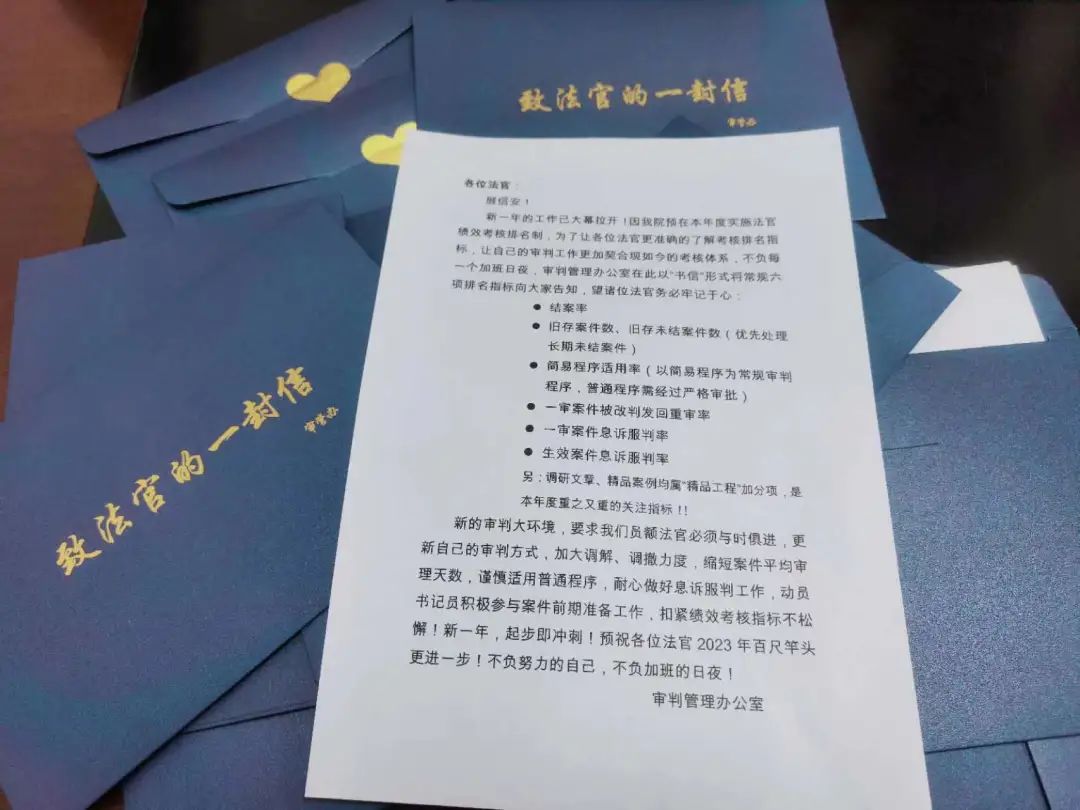 致法官的一封信
审管办
各位法官：
展信安！
新一年的工作已大幕拉开！因我院预在本年度实施法官
绩效考核排名制，为了让各位法官更准确的了解考核排名指
标，让自己的审判工作更加契合现如今的考核体系，不负每
一个加班日夜，审判管理办公室在此以“书信”形式将常规六
项排名指标向大家告知，望诸位法官务必牢记于心：
● 结案率
● 旧存案件数、旧存未结案件数（优先处理
长期未结案件）
● 简易程序适用率（以简易程序为常规审判
程序，普通程序需经过严格审批）
● 一审案件被改判发回重审率
● 一审案件息诉服判率
● 生效案件息诉服判率
另：调研文章、精品案例均属“精品工程”加分项，是
本年度重之又重的关注指标！！
新的审判大环境，要求我们员额法官必须与时俱进，更
新自己的审判方式，加大调解、调撤力度，缩短案件平均审
理天数，谨慎适用普通程序，耐心做好息诉服判工作，动员
书记员积极参与案件前期准备工作，扣紧绩效考核指标不松
懈！新一年，起步即冲刺！预祝各位法官 2023 年百尺竿头
更进一步！不负努力的自己，不负加班的日夜！
审判管理办公室
致法官的一封信
审管办